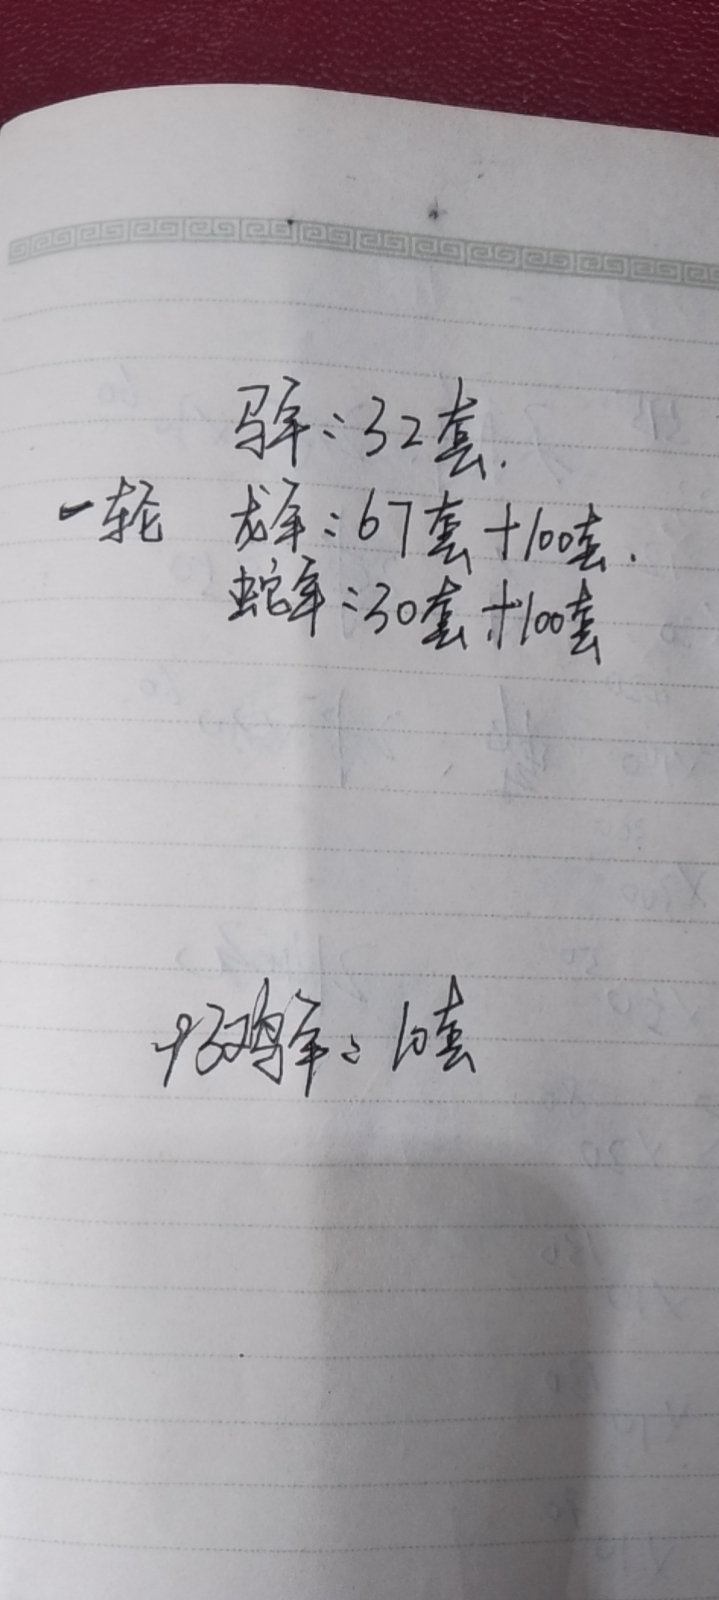 马年:32套.
一轮 龙年:67套+100套.
蛇年:30套+100套
鸡年:10套